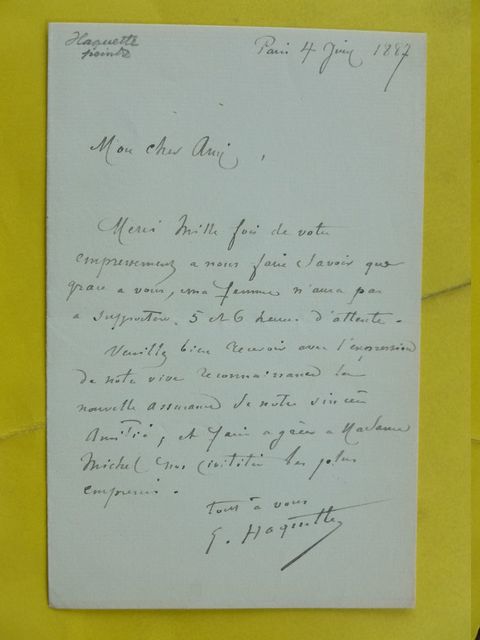 Haquette
peintre
Paris 4 Juin 1887
Mon cher Ami,
Merci mille fois de votre
empressement a nous faire savoir que
grace a vous, ma femme n'aura pas
a supporter 5 et 6 heures d'attente.
Veuillez bien recevoir avec l'expression
de notre vive reconnaissance la
nouvelle assurance de notre sincère
Amitié, et faire agréer a Madame
Michel nos civilités les plus
empressés.
tout à vous
G. Haquette